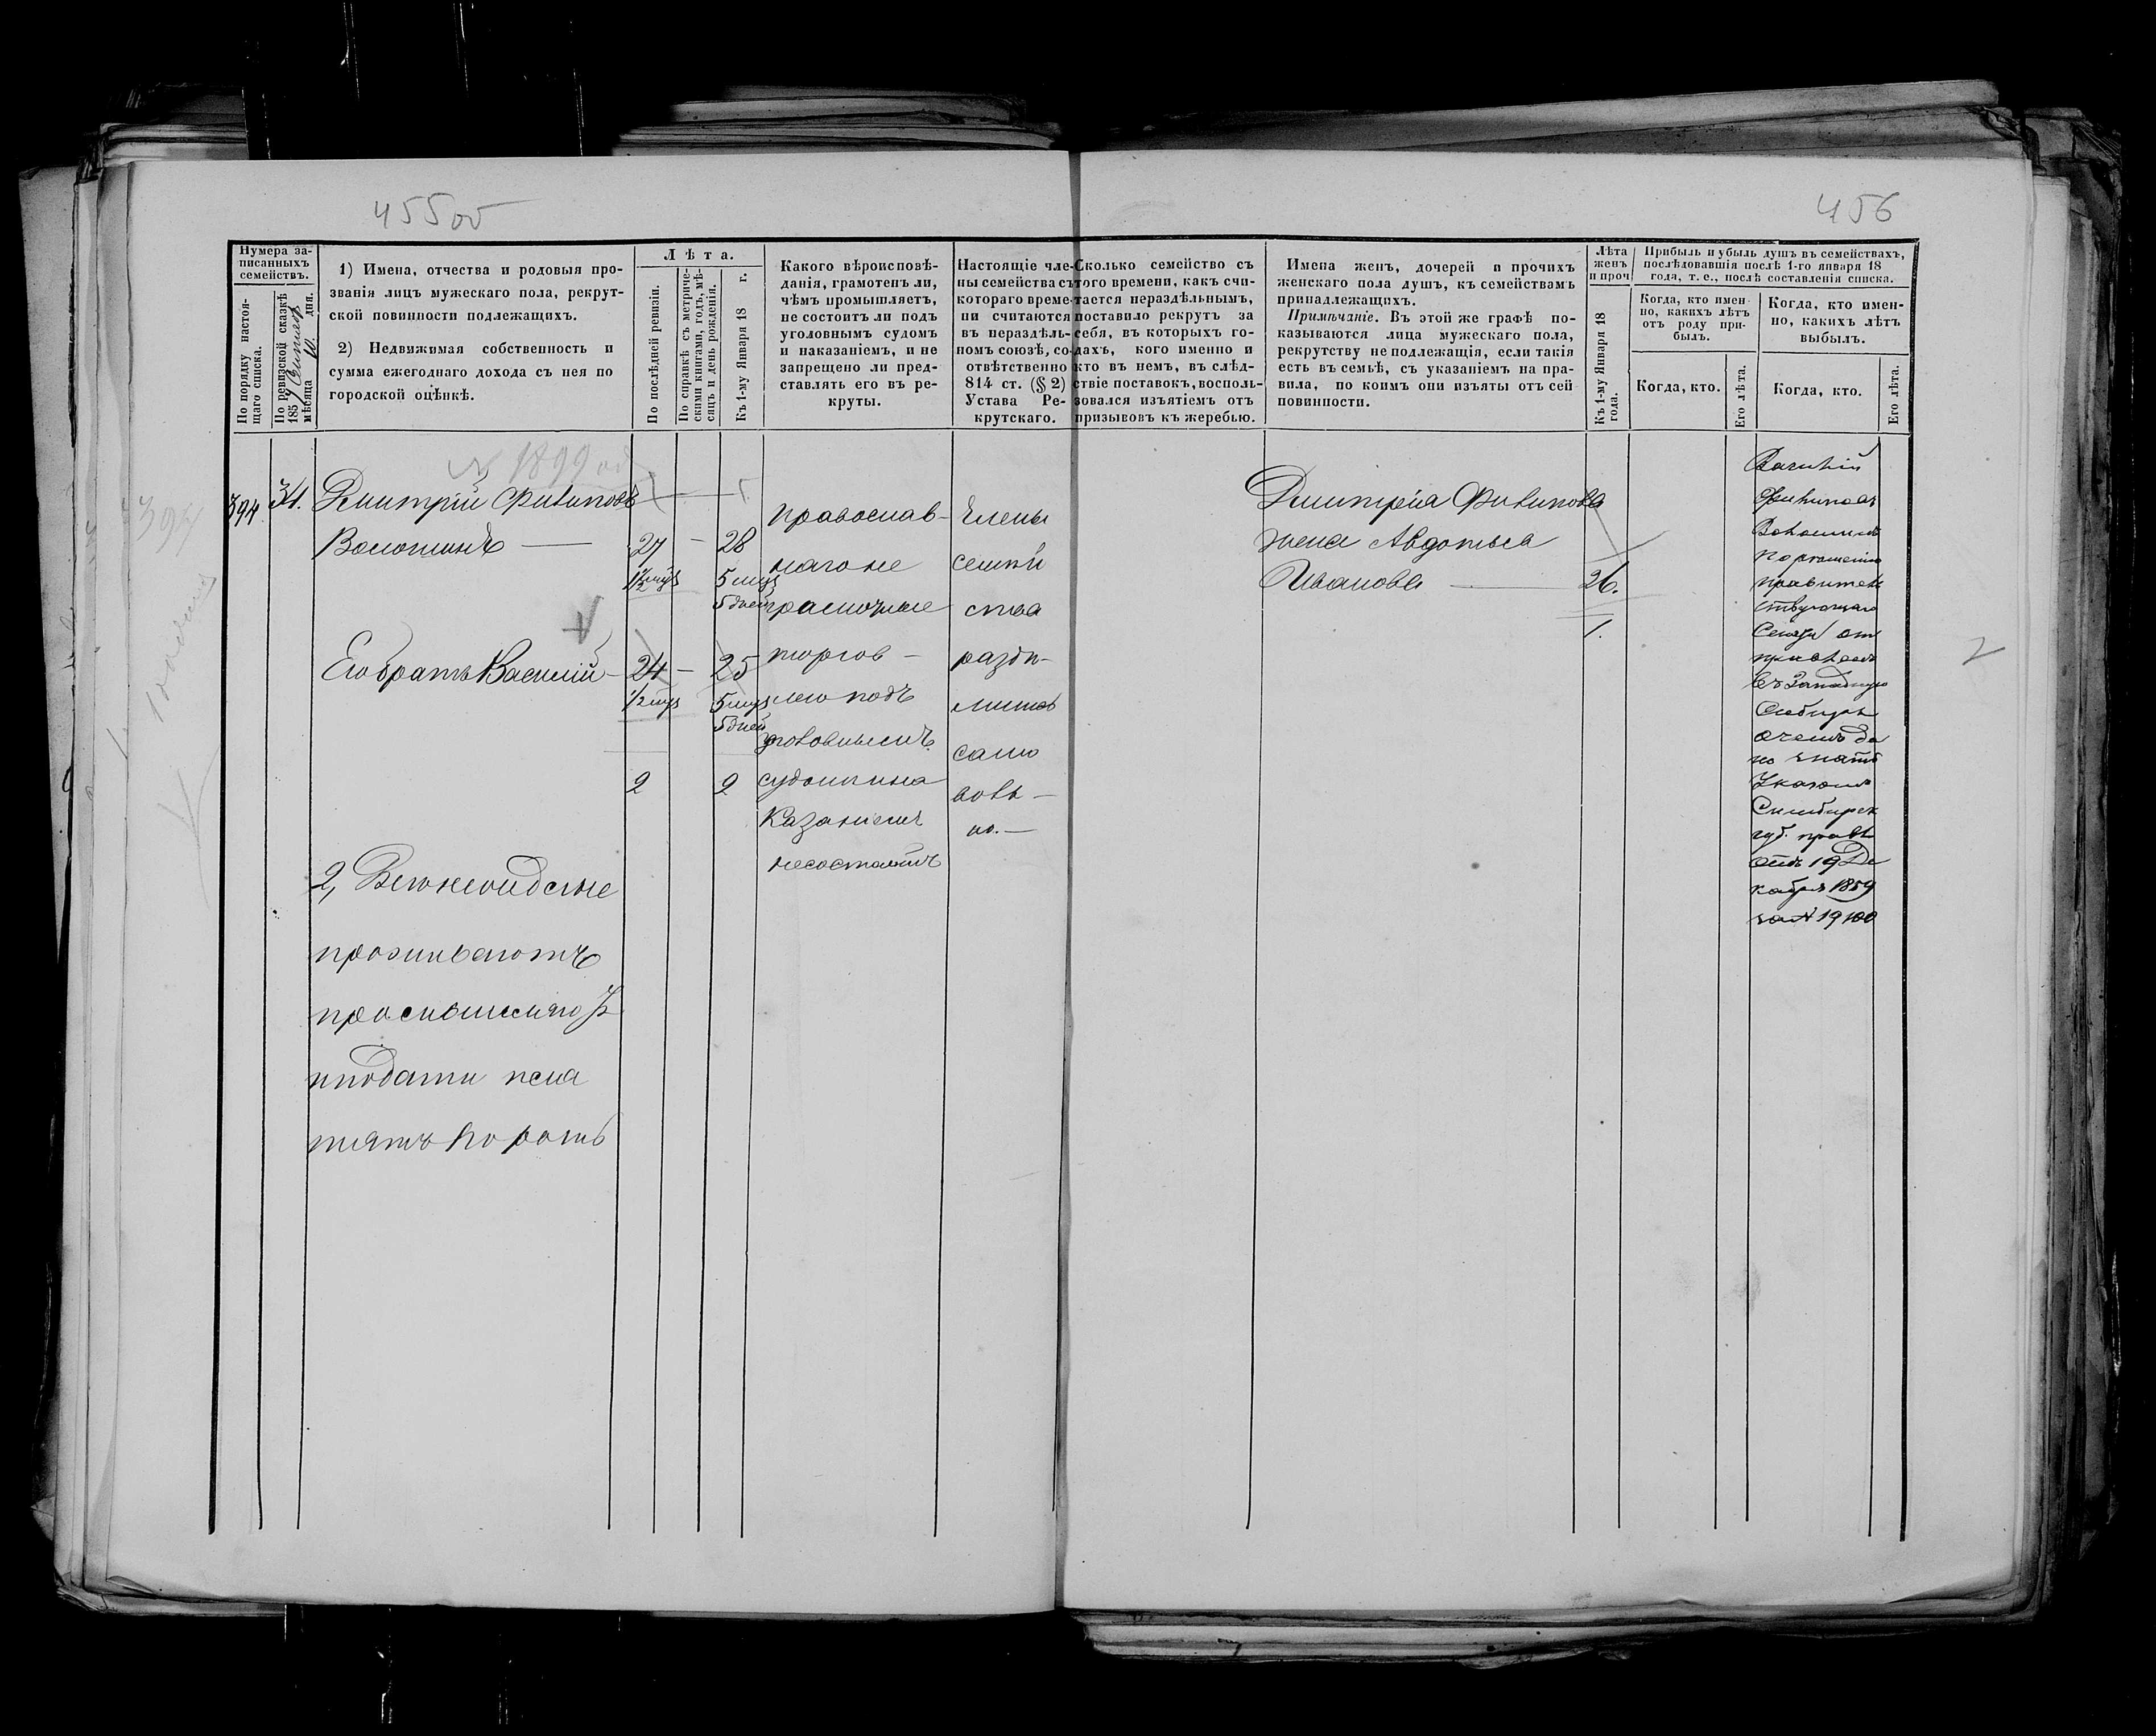 455 об
456
Нумера за-
писанныхъ
семействъ.
По порядку настоя-
щаго списка.
По ревизской сказкѣ
1857
мѣсяца 10. дня.
1) Имена, отчества и родовыя про-
званія лицъ мужескаго пола, рекрут-
ской повинности подлежащихъ.
2) Недвижимая собственность и
сумма ежегоднаго дохода съ нея по
городской оцѣнкѣ.
Лѣта.
По послѣдней ревизіи.
По справкѣ съ метриче-
скими книгами, годъ, мѣ-
сяцъ и день рожденія.
Къ 1-му Января 18 г.
Какого вѣроисповѣ-
данія, грамотенъ ли,
чѣмъ промышляетъ,
не состоитъ ли подъ
уголовнымъ судомъ
и наказаніемъ, и не
запрещено ли пред-
ставлять его въ ре-
круты.
Настоящіе чле-
ны семейства съ
котораго време-
ни считаются
въ нераздѣль-
номъ союзѣ, со-
отвѣтственно
814 ст. (§ 2)
Устава Ре-
крутскаго.
Сколько семейство съ
того времени, какъ счи-
тается нераздѣльнымъ,
поставило рекрутъ за
себя, въ которыхъ го-
дахъ, кого именно и
кто въ немъ, въ слѣд-
ствіе поставокъ, восполь-
зовался изъятіемъ отъ
призывовъ къ жеребью.
Имена женъ, дочерей и прочихъ
женскаго пола душъ, къ семействамъ
принадлежащихъ.
Примѣчаніе. Въ этой же графѣ по-
казываются лица мужескаго пола,
рекрутству не подлежащія, если такія
есть въ семьѣ, съ указаніемъ на пра-
вила, по коимъ они изъяты отъ сей
повинности.
Лѣта
женъ
и проч
Къ 1-му Января 18
года.
Прибыль и убыль душъ въ семействахъ,
послѣдовавшія послѣ 1-го января 18
года, т. е., послѣ составленія списка.
Когда, кто имен-
но, какихъ лѣтъ
отъ роду при-
былъ.
Когда, кто.
Его лѣта.
Когда, кто имен-
но, какихъ лѣтъ
выбылъ.
Когда, кто.
Его лѣта.
1899
394
394 31. Дмитрій Филиповъ
Волошинъ — 27 — 28
1/2 мцъ 5 мцъ
5 дней
Его братъ Василій — 24 — 25
1/2 мцъ 5 мцъ
5 дней
2 2
2,
проживаютъ
подати
православ-
наго не
грамотные
торгов-
лею подъ
уголовнымъ
судомъ и на
казаніемъ
несостоятъ
Члены
семѣй
ства
раздѣ-
лились
само
воль-
но. —
Дмитрія Филипова
жена Авдотья
Иванова — 26.
1.
Василій
Филиповъ
Волошинъ
по решенію
правитель
ствующаго
Сената от
въ Западную
Сибирь
о чемъ да
но знать
Указомъ
Симбирск
губ. правл
отъ 19 Де
кабря 1859
за № 19100
2